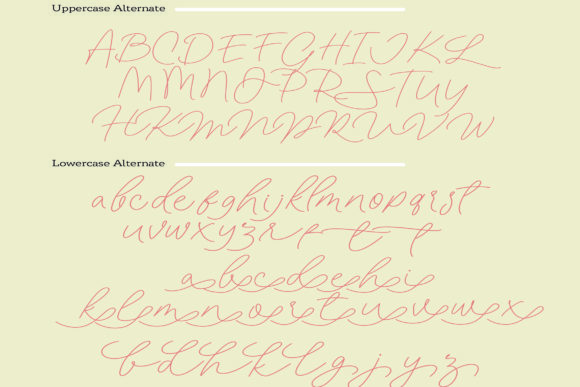 Uppercase Alternate
A B C D E F G H I J K L
M M N O P R S T U Y
H K M N P R U V W
Lowercase Alternate
a b c d e f g h i j k l m n o p q r s t
u v w x y z r f t t
a b c d e h i
k l m n o r t u v w x
b d h k l g j y z